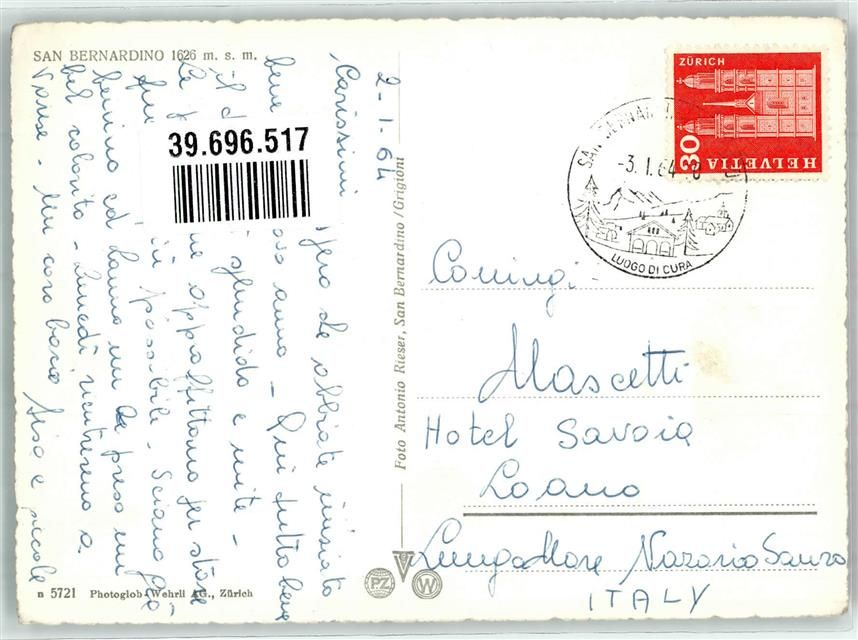 SAN BERNARDINO 1626 m. s. m.
2-1.64
Carissimi
spero che abbiate iniziato
bene anno - Qui tutto bene
il splendido e mite -
approfittano per stare
più possibile - Sciano già
benino ed hanno un preso un
bel colorito - Lunedì rientreremo a
Varese - Un caro bacio Lisa e piccole
39.696.517
Foto Antonio Rieser, San Bernardino /Grigioni
n 5721 Photoglob-Wehrli AG., Zürich
PZ
W
ZÜRICH
30
HELVETIA
-3.1.64
LUOGO DI CURA
Coniugi -
Mascetti
Hotel Savoia
Loano
LungoMare Nazario Sauro
ITALY